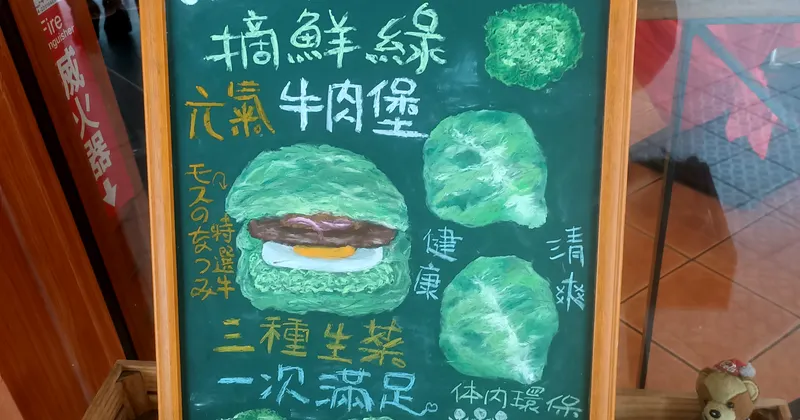 Fire
滅火器
摘鮮綠
元氣牛肉堡
モスの
特選牛
健康
清爽
三種生菜
一次滿足。
体内環保